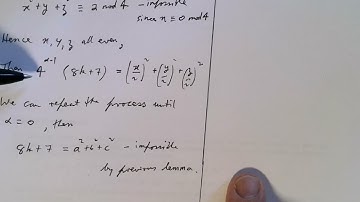 x² + y² + z² ≡ 2 mod 4 - impossible
since n ≡ 0 mod 4
Hence x, y, z all even,
Then 4^(α-1) (8k+7) = (x/2)² + (y/2)² + (z/2)²
We can repeat the process until
α = 0, then
8k+7 = a² + b² + c² - impossible
by previous lemma.